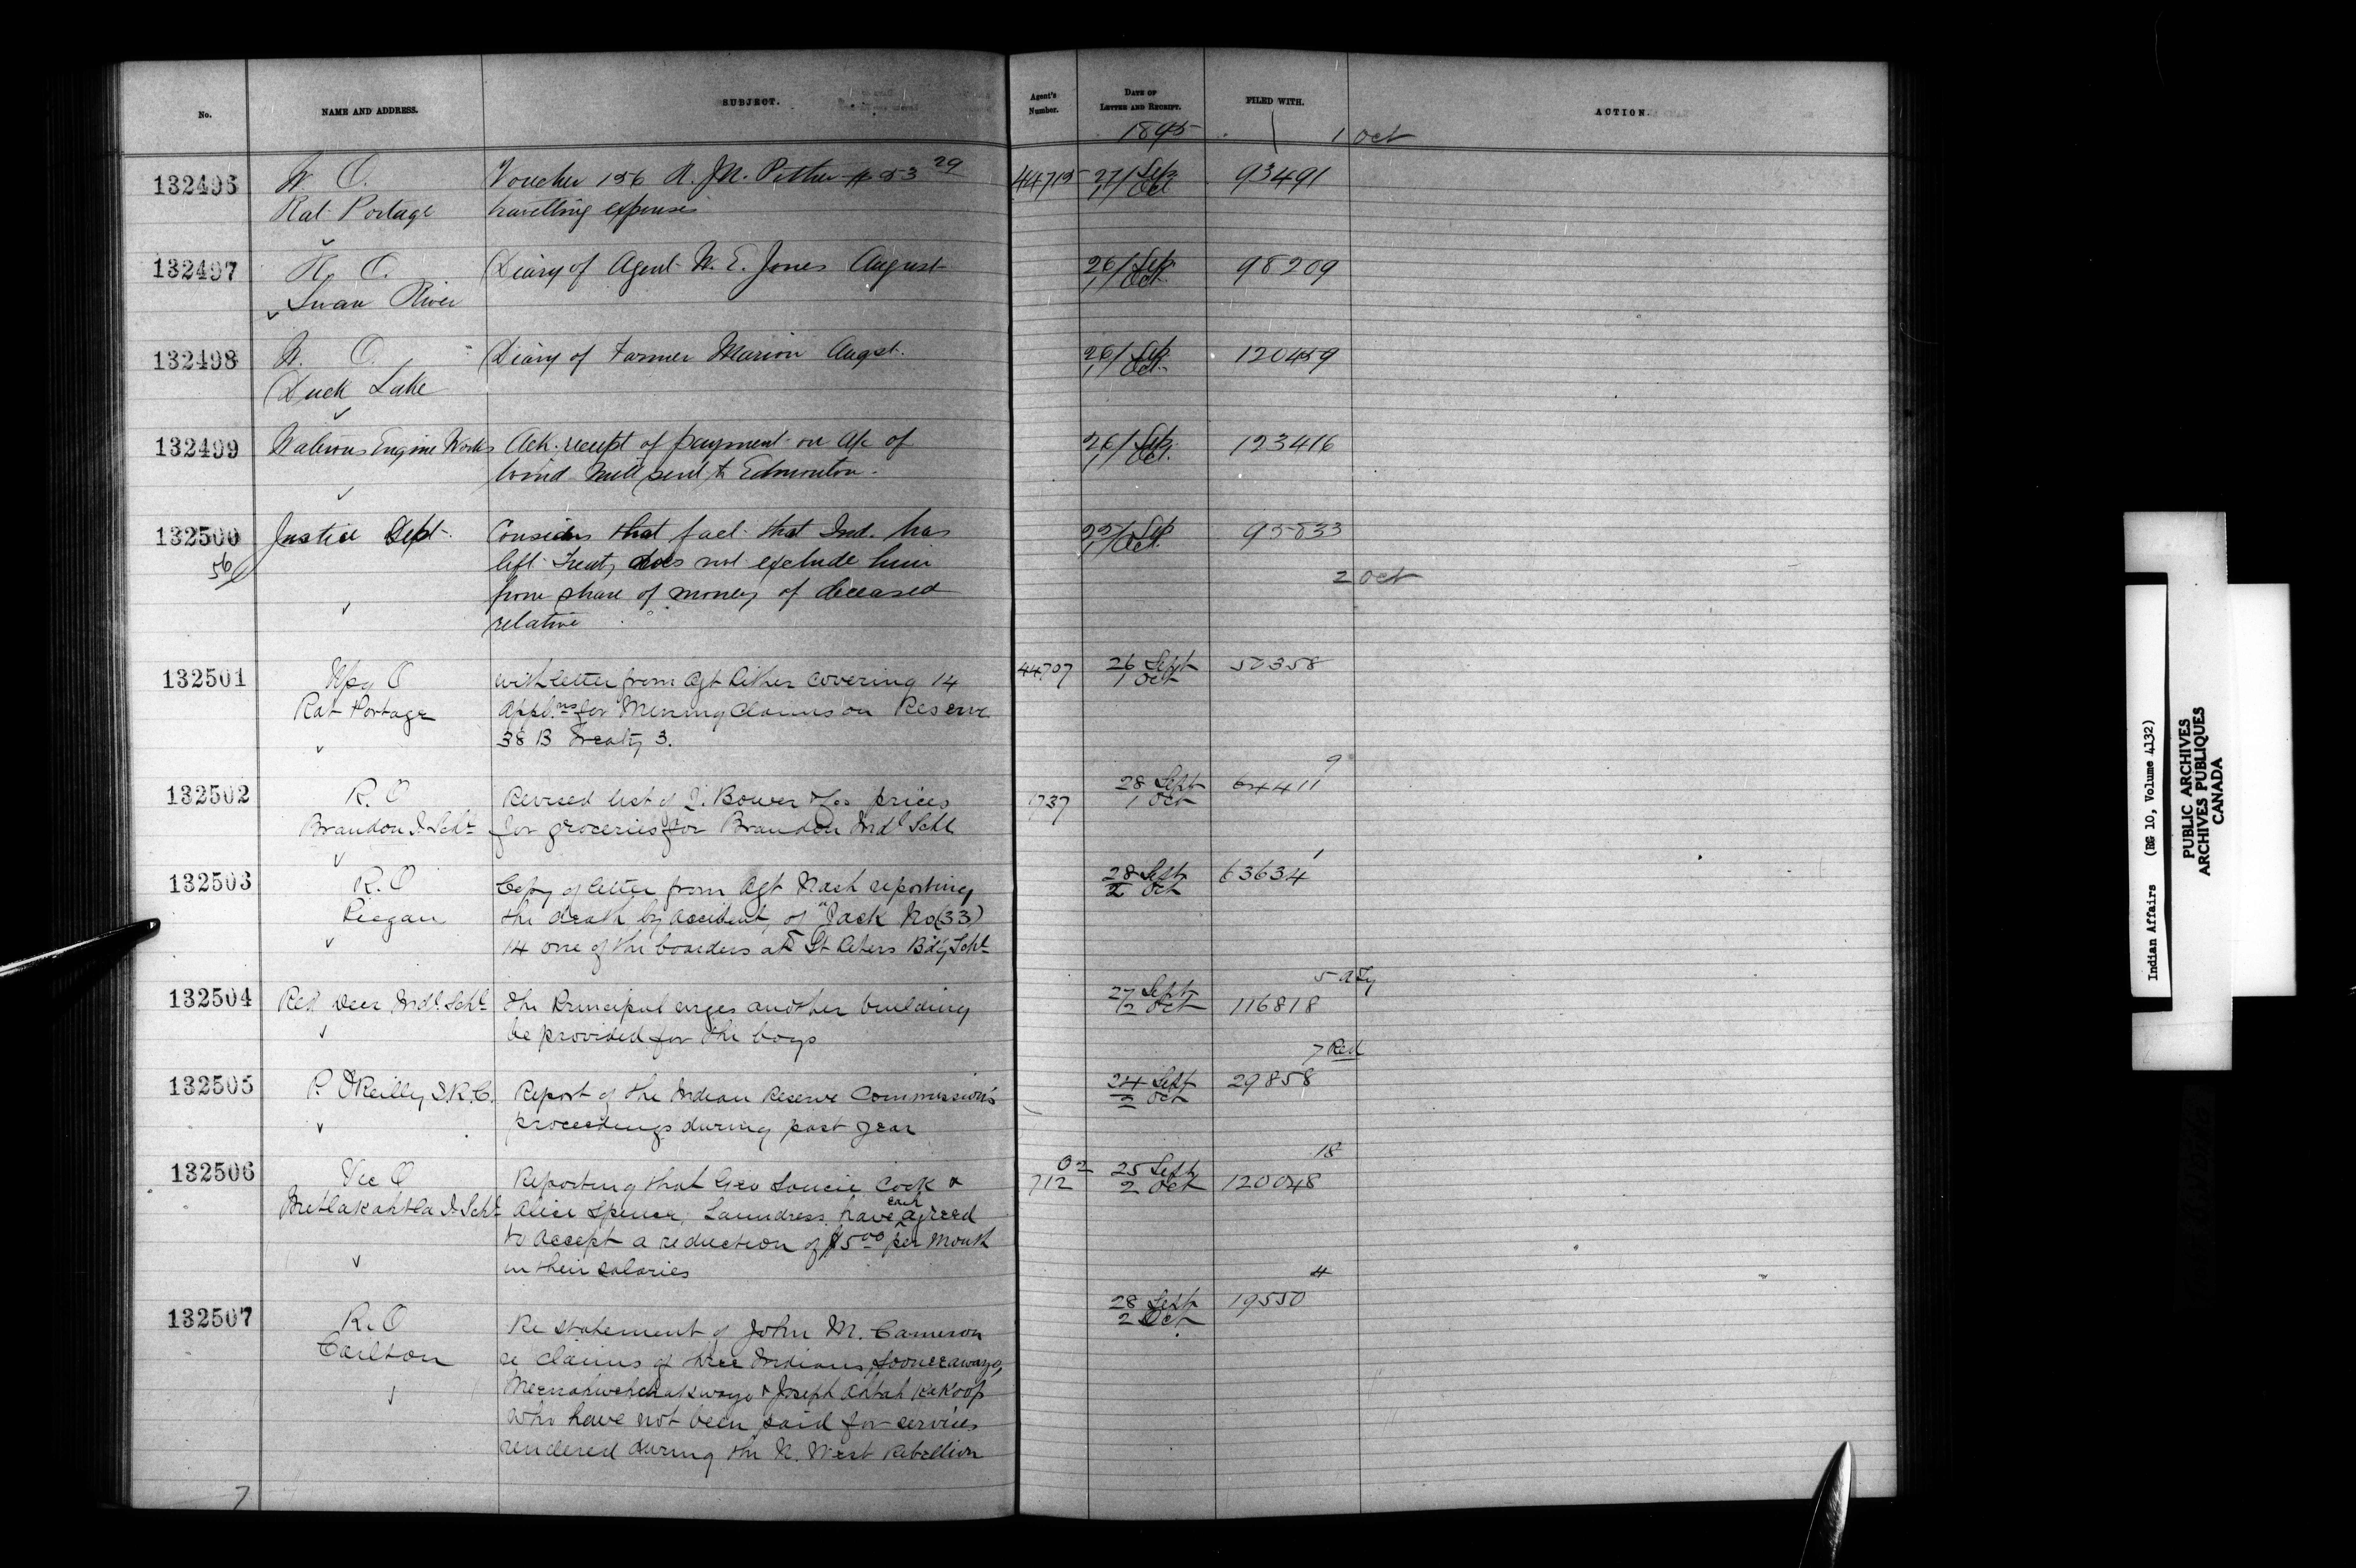 No. NAME AND ADDRESS. SUBJECT. Agent's Number. DATE OF LETTER AND RECEIPT. FILED WITH. ACTION.
1895 1 Oct
132496 W. O. Voucher 156 R. J. N. Pither $53 29 44715 27/Sep 93491
Rat Portage travelling expenses 1/Oct
132497 R. O. Diary of Agent W. E. Jones August 26/Sep 98209
Swan River 1/Oct
132498 W. O. Diary of Farmer Marion Augst. 26/Sep 120459
Duck Lake 1/Oct
132499 Waterous Engine Works Ack. receipt of payment on a/c of 26/Sep 123416
wind mill sent to Edmonton. 1/Oct.
132500 Justice Dept. Considers that fact that Ind. has 25/Sep 95833
56 left Treaty does not exclude him 1/Oct.
from share of money of deceased 2 Oct
relative
132501 Wpg O with letter from Agt Pither covering 14 44707 26 Sept 50358
Rat Portage Appl.ns for Mining Claims on Reserve 1 Oct
38 B Treaty 3.
9
132502 R. O Revised list of J. Bower & Co prices 737 28 Sept 64411
Brandon I. Schl for groceries for Brandon Indl Schl 1 Oct
1
132503 R. O Copy of letter from Agt Nash reporting 28 Sept 63634
Piegan the death by accident, of "Jack No (33) 2 Oct
14 one of the boarders at St Peters Bdg Schl
5
132504 Red Deer Indl Schl The Principal urges another building 27 Sept 116818
be provided for the boys 2 Oct
7 Red
132505 P. O'Reilly, I.R.C. Report of the Indian Reserve Commission's 24 Sept 29858
proceedings during past year 2 Oct
18
132506 Vic O Reporting that Geo Soucie Cook & 712 25 Sept 120048
Metlakahtla I. Schl Alice Spencer, Laundress have each agreed 2 Oct
to accept a reduction of $5 00 per month
in their salaries
4
132507 R. O Re statement of John M. Cameron 28 Sept 19550
Carlton re claims of three Indians, 2 Oct
& Joseph Ahtah Kakoop
who have not been paid for services
rendered during the N. West Rebellion
7
Indian Affairs (RG 10, Volume 4132)
PUBLIC ARCHIVES
ARCHIVES PUBLIQUES
CANADA